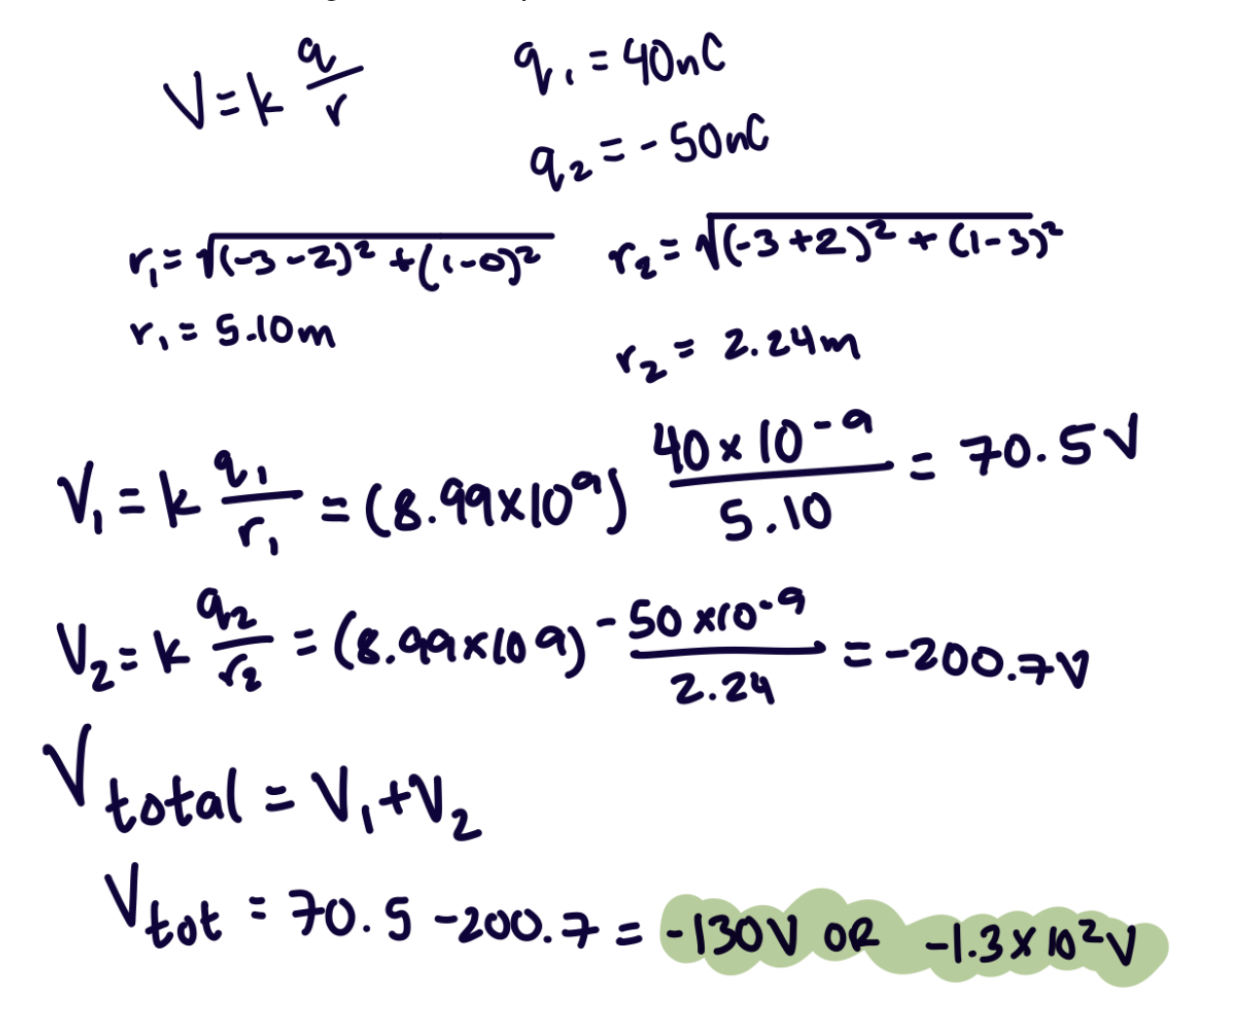 V = k q/r    q₁ = 40nC
q₂ = -50nC
r₁ = √((-3-2)² + (1-0)²)    r₂ = √((-3+2)² + (1-3)²)
r₁ = 5.10m    r₂ = 2.24m
V₁ = k q₁/r₁ = (8.99x10⁹) 40x10⁻⁹/5.10 = 70.5V
V₂ = k q₂/r₂ = (8.99x10⁹) -50x10⁻⁹/2.24 = -200.7V
Vtotal = V₁+V₂
Vtot = 70.5 -200.7 = -130V OR -1.3x10²V